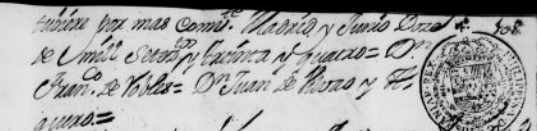 tubiere por mas combte. Madrid y Junio Doze
de mill Setezos y treinta y quatro= Dn
Franco. de Robles= Dn Juan de y Fi-
guero.=